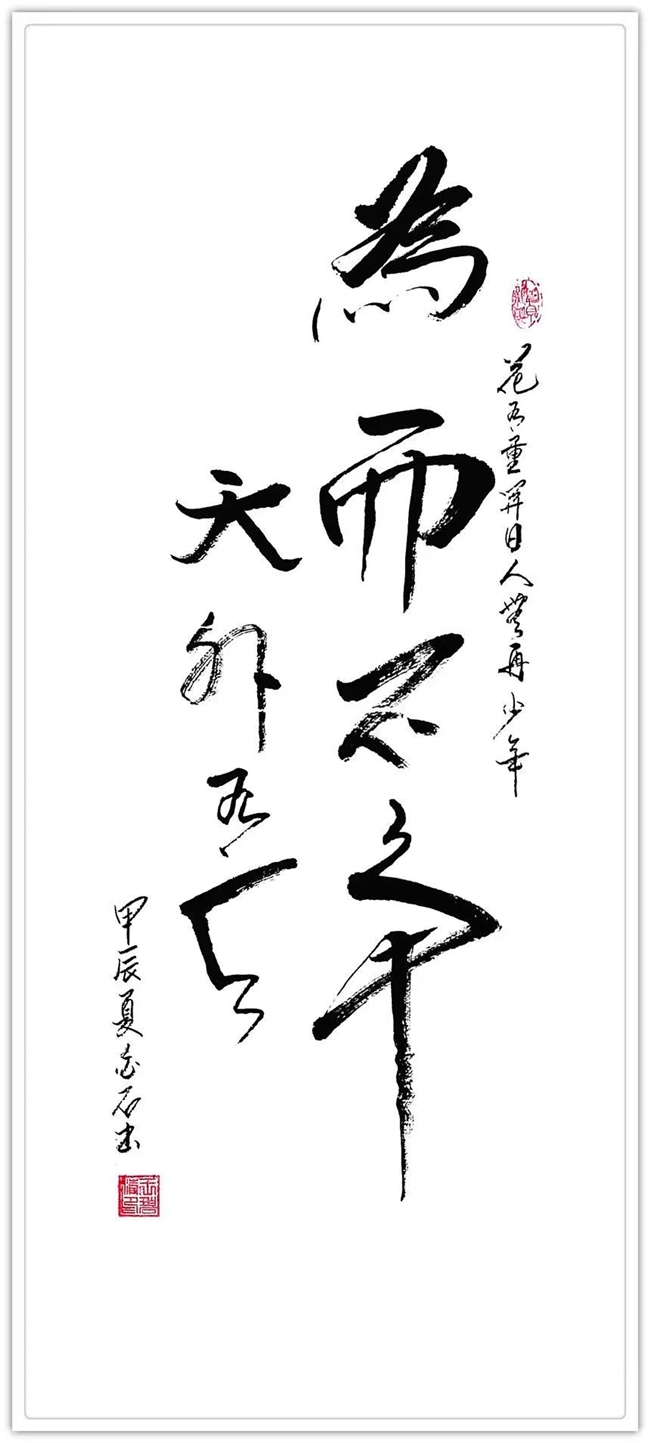 花有重開日人無再少年
為而不爭
天外有天
甲辰夏石书